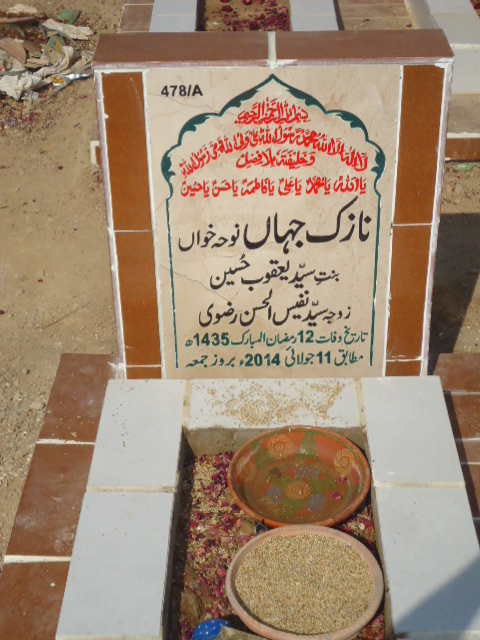 478/A
بسم اللہ الرحمن الرحیم
لا الہ الا اللہ محمد رسول اللہ علی ولی اللہ وصی رسول اللہ
و خلیفتہ بلا فصل
یا اللہ یا محمد یا علی یا فاطمہ یا حسن یا حسین
نازک جہاں نوحہ خواں
بنتِ سیّد یعقوب حُسین
زوجہ سیّد نفیس الحسن رضوی
تاریخ وفات 12 رمضان المبارک 1435ھ
مطابق 11 جولائی 2014ء بروز جمعہ